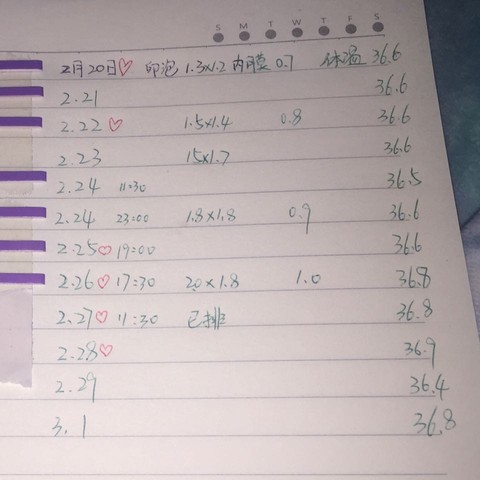 S M T W T F S
2月20日♡ 卵泡 1.3x1.2 内膜 0.7 体温 36.6
2.21 36.6
2.22♡ 1.5x1.4 0.8 36.6
2.23 15x1.7 36.6
2.24 11:30 36.5
2.24 23:00 1.8x1.8 0.9 36.6
2.25♡ 19:00 36.6
2.26♡ 17:30 2.0x1.8 1.0 36.8
2.27♡ 11:30 已排 36.8
2.28♡ 36.9
2.29 36.4
3.1 36.8